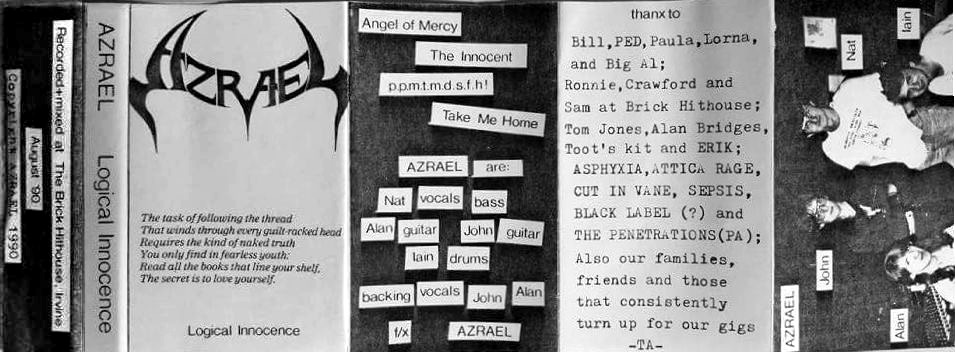 Recorded+mixed at The Brick Hithouse, Irvine
August '90
Copyright AZRAEL 1990
AZRAEL Logical Innocence
AZRAEL
The task of following the thread
That winds through every guilt-racked head
Requires the kind of naked truth
You only find in fearless youth:
Read all the books that line your shelf,
The secret is to love yourself.
Logical Innocence
Angel of Mercy
The Innocent
p.p.m.t.m.d.s.f.h!
Take Me Home
AZRAEL are:
Nat vocals bass
Alan guitar John guitar
Iain drums
backing vocals John Alan
f/x AZRAEL
thanx to
Bill,PED,Paula,Lorna,
and Big Al;
Ronnie,Crawford and
Sam at Brick Hithouse;
Tom Jones,Alan Bridges,
Toot's kit and ERIK;
ASPHYXIA,ATTICA RAGE,
CUT IN VANE, SEPSIS,
BLACK LABEL (?) and
THE PENETRATIONS(PA);
Also our families,
friends and those
that consistently
turn up for our gigs
-TA-
Iain
Nat
John
Alan
AZRAEL